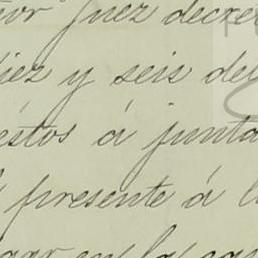 ñor juez decre
diez y seis del
estos á junta
presente á l
en la